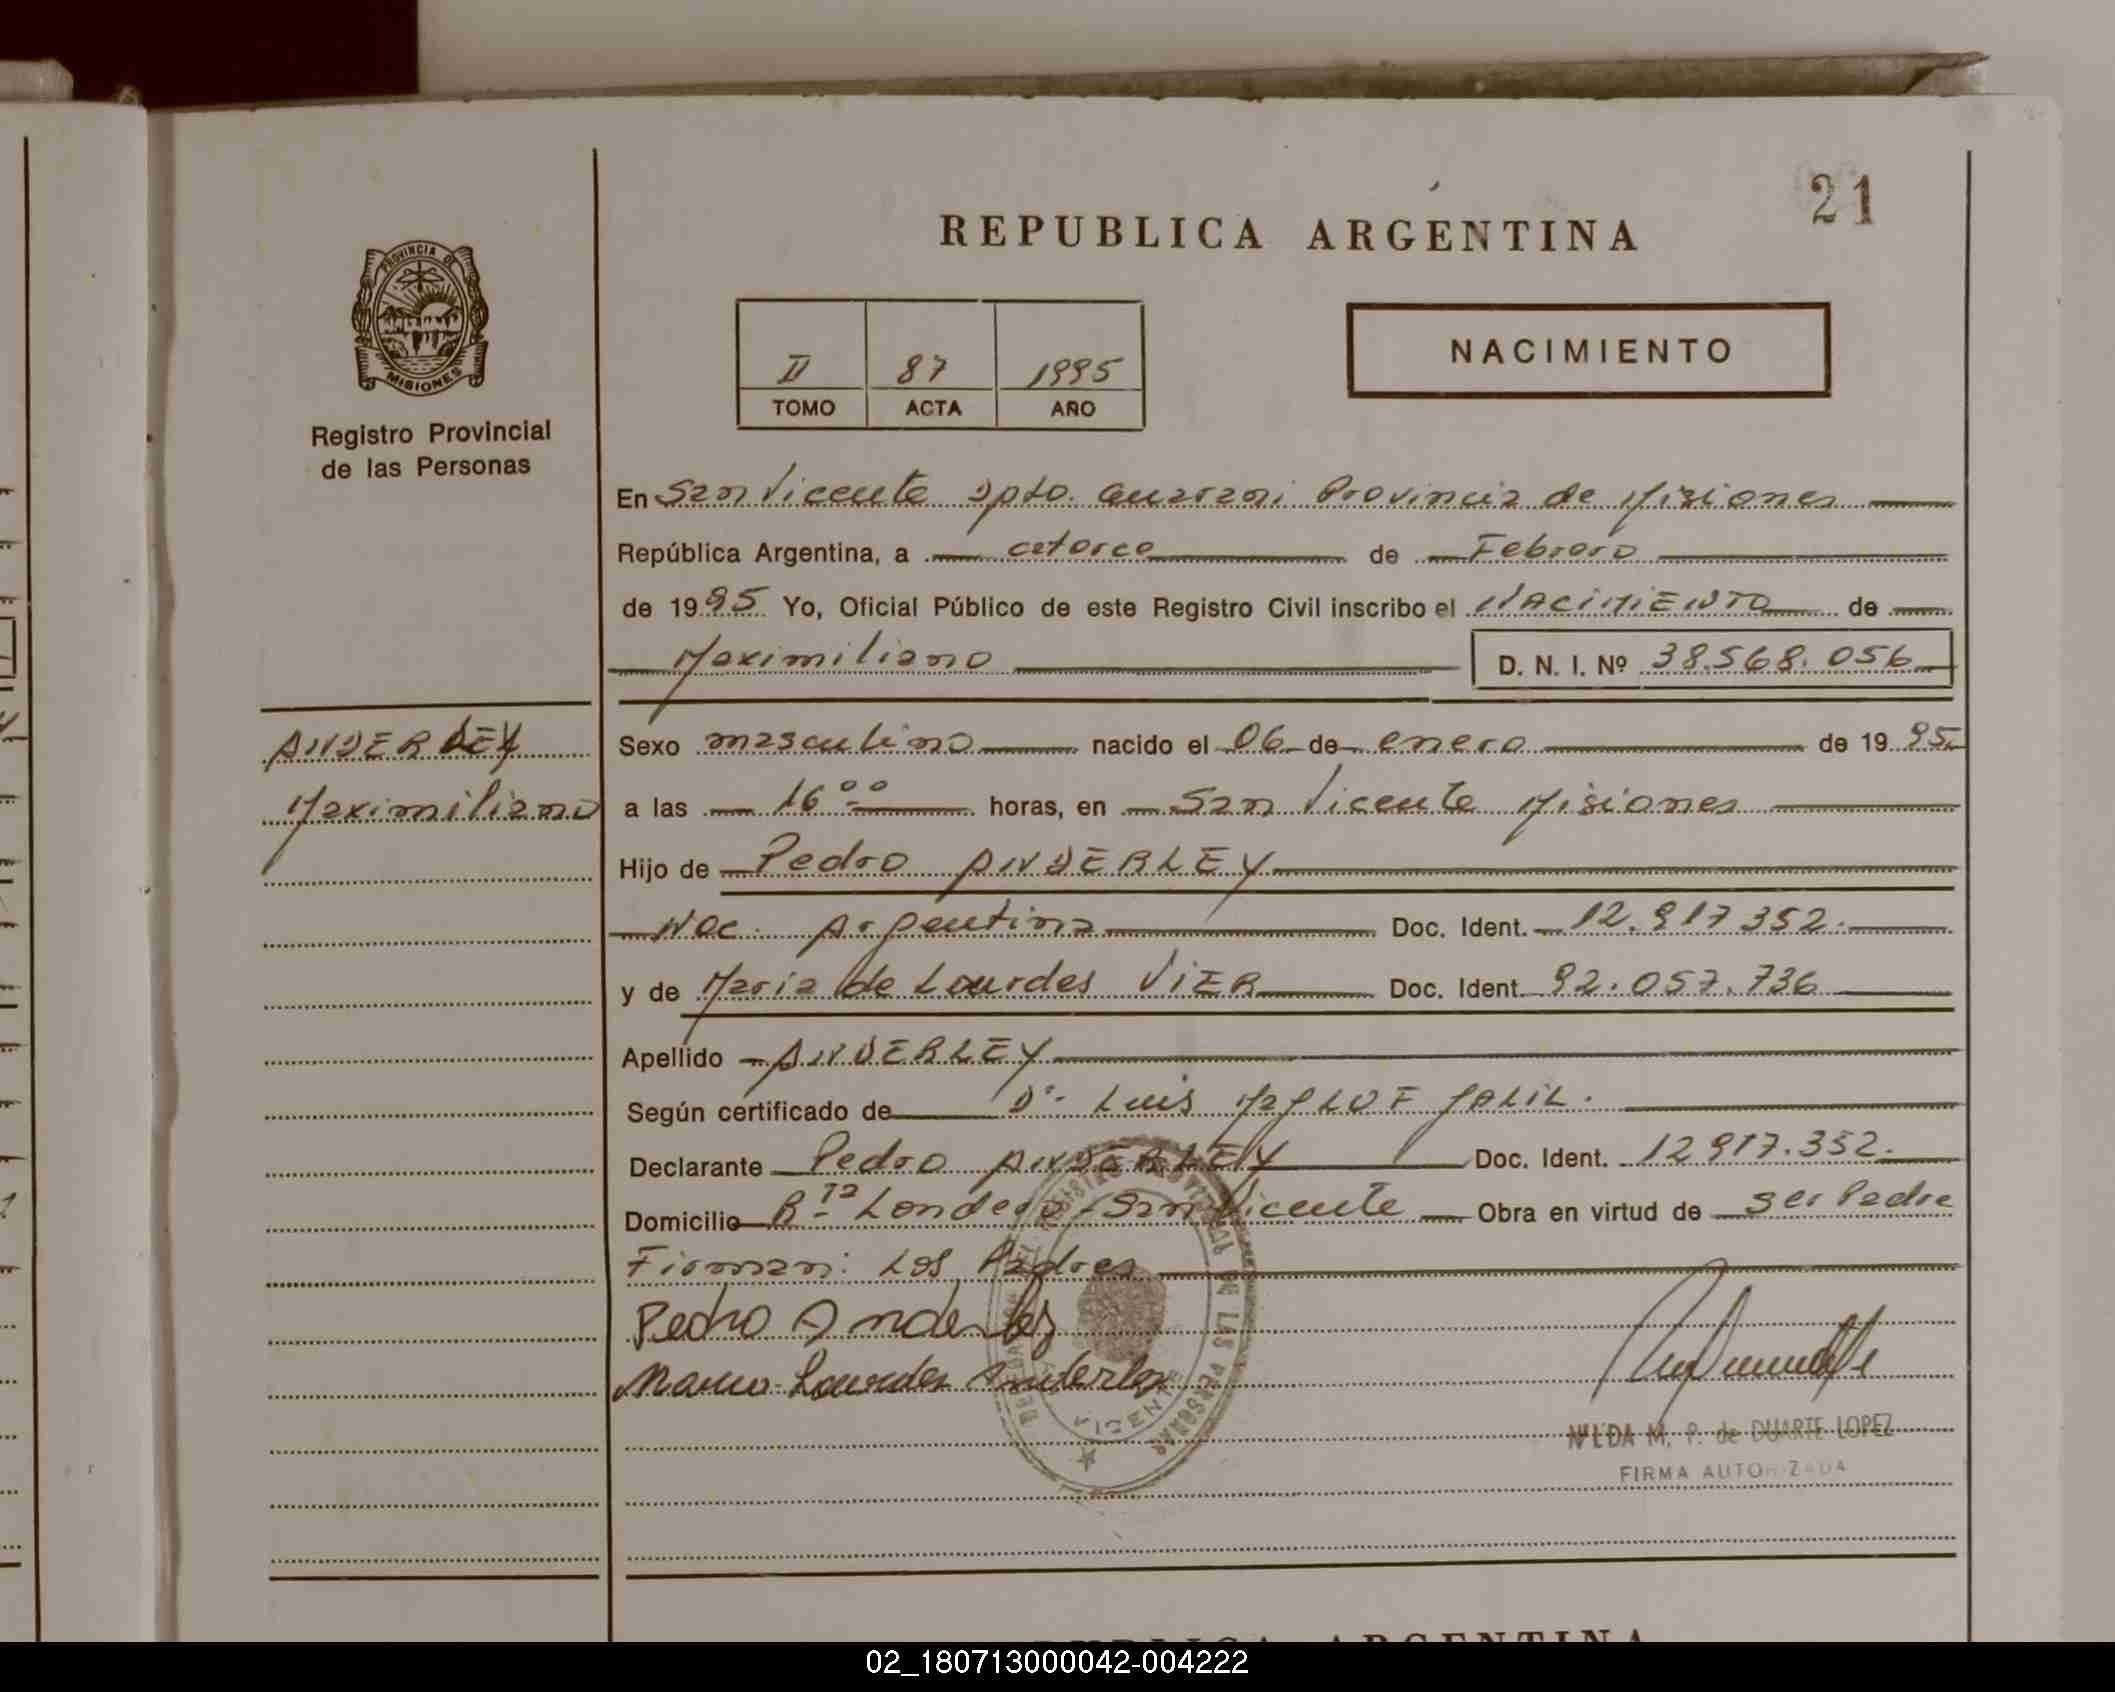 21
REPUBLICA ARGENTINA
PROVINCIA DE
MISIONES
Registro Provincial
de las Personas
II 87 1995
TOMO ACTA AÑO
NACIMIENTO
En San Vicente Dpto. Guarani Provincia de Misiones
República Argentina, a catorce de Febrero
de 1995 Yo, Oficial Público de este Registro Civil inscribo el NACIMIENTO de
Maximiliano D. N. I. Nº 38.568.056
ANDERLEY
Maximiliano
Sexo masculino nacido el 06 de enero de 1995
a las 16ºº horas, en San Vicente Misiones
Hijo de Pedro ANDERLEY
Nac. Argentina Doc. Ident. 12.917.352.
y de Maria de Lourdes VIER Doc. Ident. 92.057.736
Apellido ANDERLEY
Según certificado de Dr. Luis JALIL.
Declarante Pedro ANDERLEY Doc. Ident. 12917.352.
Domicilio San Vicente Obra en virtud de ser Padre
Firman: Los Padres
Pedro Anderley
Maria Lourdes Anderley
REGISTRO PROVINCIAL DE LAS PERSONAS
NILDA M. P. de DUARTE LOPEZ
FIRMA AUTORIZADA
02_180713000042-004222